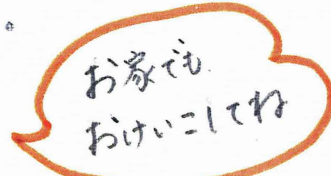 お家でも
おけいこしてね